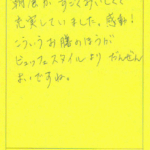 朝食が すごくおいしくて
充実していました。感動!
こういうお膳のほうが
ビュッフェスタイルより だんぜん
よいですね。